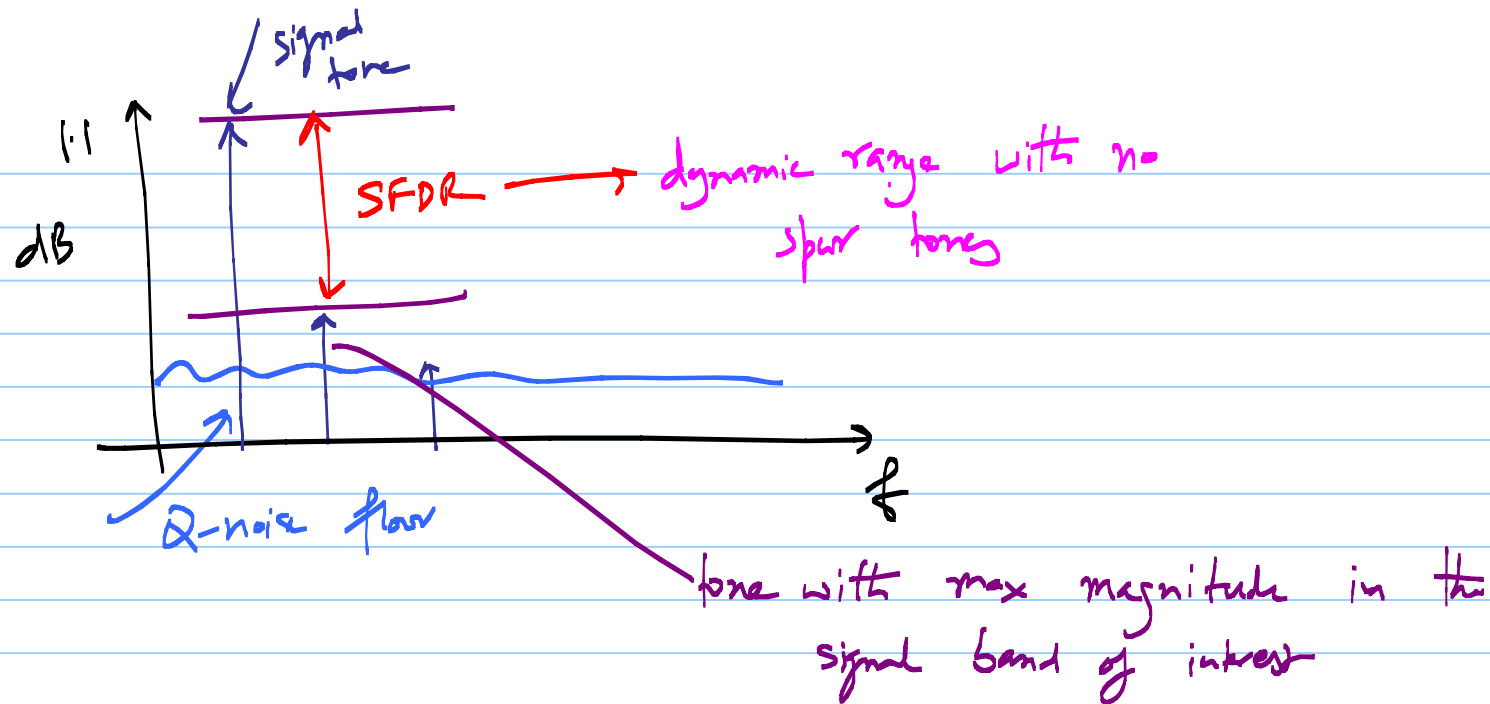 signal
tone
|.|
dB
SFDR
dynamic range with no
spur tones
f
Q-noise floor
tone with max magnitude in the
signal band of interest